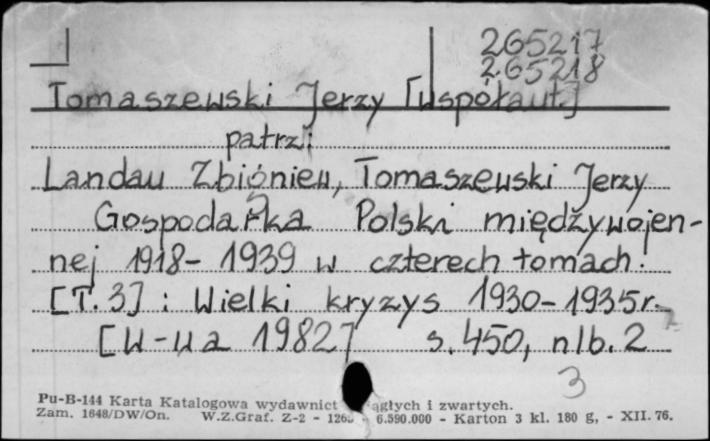 265217
265218
Tomaszewski Jerzy [współaut.]
patrz:
Landau Zbigniew, Tomaszewski Jerzy
Gospodarka Polski międzywojen-
nej 1918-1939 w czterech tomach.
[T.3] : Wielki kryzys 1930-1935r.
[W-wa 1982] s.450, nlb.2
3
Pu-B-144 Karta Katalogowa wydawnict ągłych i zwartych.
Zam. 1648/DW/On. W.Z.Graf. Z-2 - 6.590.000 - Karton 3 kl. 180 g, - XII. 76.